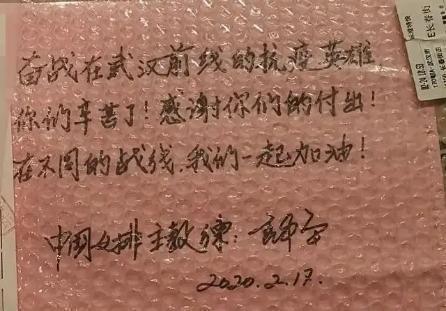 奋战在武汉前线的抗疫英雄
你们辛苦了！感谢你们的付出！
在不同的战线，我们一起加油！
中国女排主教练：郎平
2020.2.17.